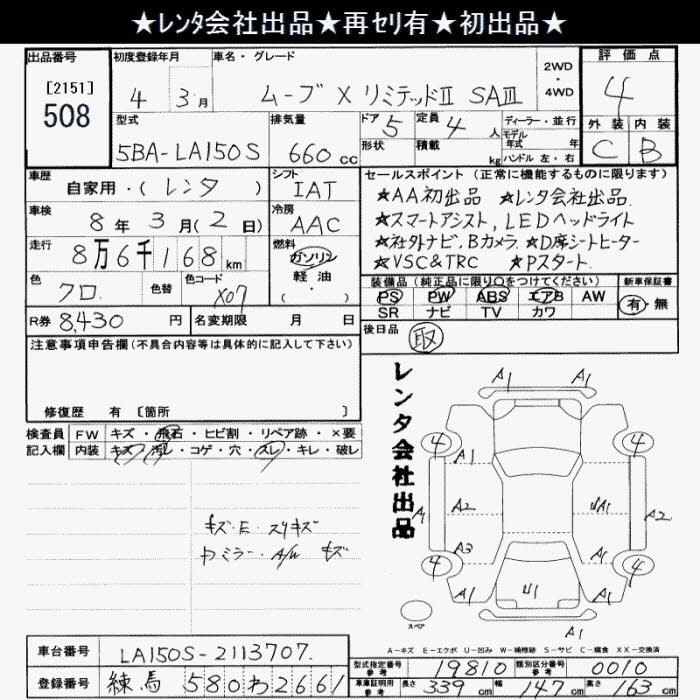 ★レンタ会社出品★再セリ有★初出品★
出品番号 初度登録年月 車名・グレード 評価点
[2151]
508
4 年 3月 ムーブ X リミテッドⅡ SAⅢ 2WD・4WD 4
型式 排気量 ドア 5 定員 4 人 ディーラー・並行 外装 内装
5BA-LA150S 660 cc 形状 積載 kg モデル年式 年 ハンドル 左・右 C B
車歴 自家用・(レンタ) シフト IAT
車検 8年 3月(2日) 冷房 AAC
走行 8万6千168km 燃料 ガソリン 軽油 ( ・ )
色 クロ 色替 色コード X07
R券 8,430 円 名変期限 月 日
セールスポイント (正常に機能するものに限ります)
★AA初出品 ★レンタ会社出品
★スマートアシスト,LEDヘッドライト
★社外ナビ,Bカメラ ★D席シートヒーター
★VSC&TRC ★Pスタート
装備品(純正品に限り○をつけてください) 新車保証書
PS PW ABS エアB AW 有・無
SR ナビ TV カワ
後日品 取
注意事項申告欄(不具合内容等は具体的に記入して下さい)
修復歴 有 [箇所 ]
検査員 FW キズ・飛石・ヒビ割・リペア跡・×要
記入欄 内装 キズ・汚レ・コゲ・穴・スレ・キレ・破レ
キズ・E・スリキズ
ミラー・A/W キズ
レンタ会社出品
A1 A1
4 4
A1
A1 A2 A2
A3 A1
4 4
A1 U1 A1
A1
スペア
A-キズ E-エクボ U-凹み W-補修跡 S-サビ C-腐食 XX-交換済
車台番号 LA150S-2113707.
登録番号 練馬 580 わ 2661
型式指定番号 参考 19810 類別区分番号 参考 0010
車庫証明用 参考 長さ 339 cm 幅 147 cm 高さ 163 cm